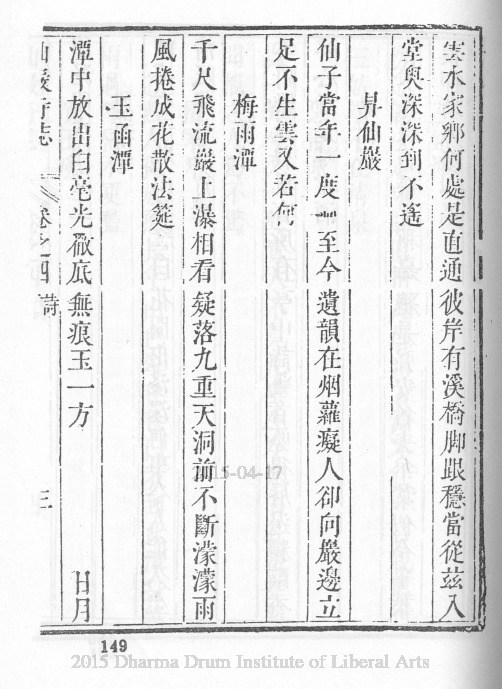 雲水家鄉何處是直通彼岸有溪橋脚跟穩當從茲入
堂奧深深到不遙
昇仙巖
仙子當年一度 至今遺韻在烟蘿癡人卻向巖邊立
足不生雲又若何
梅雨潭
千尺飛流巖上瀑相看疑落九重天洞前不斷濛濛雨
風捲成花散法筵
玉函潭
潭中放出白毫光徹底無痕玉一方 甘月
仙巖寺志 卷之四 詩 三
2015-04-17
149
2015 Dharma Drum Institute of Liberal Arts